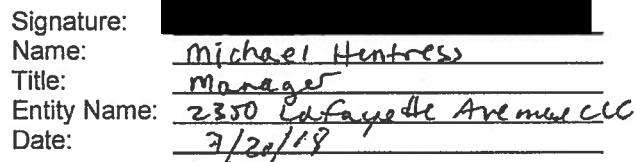 Signature:
Name: Michael Hentress
Title: Manager
Entity Name: 2350 Lafayette Avenue LLC
Date: 7/20/18